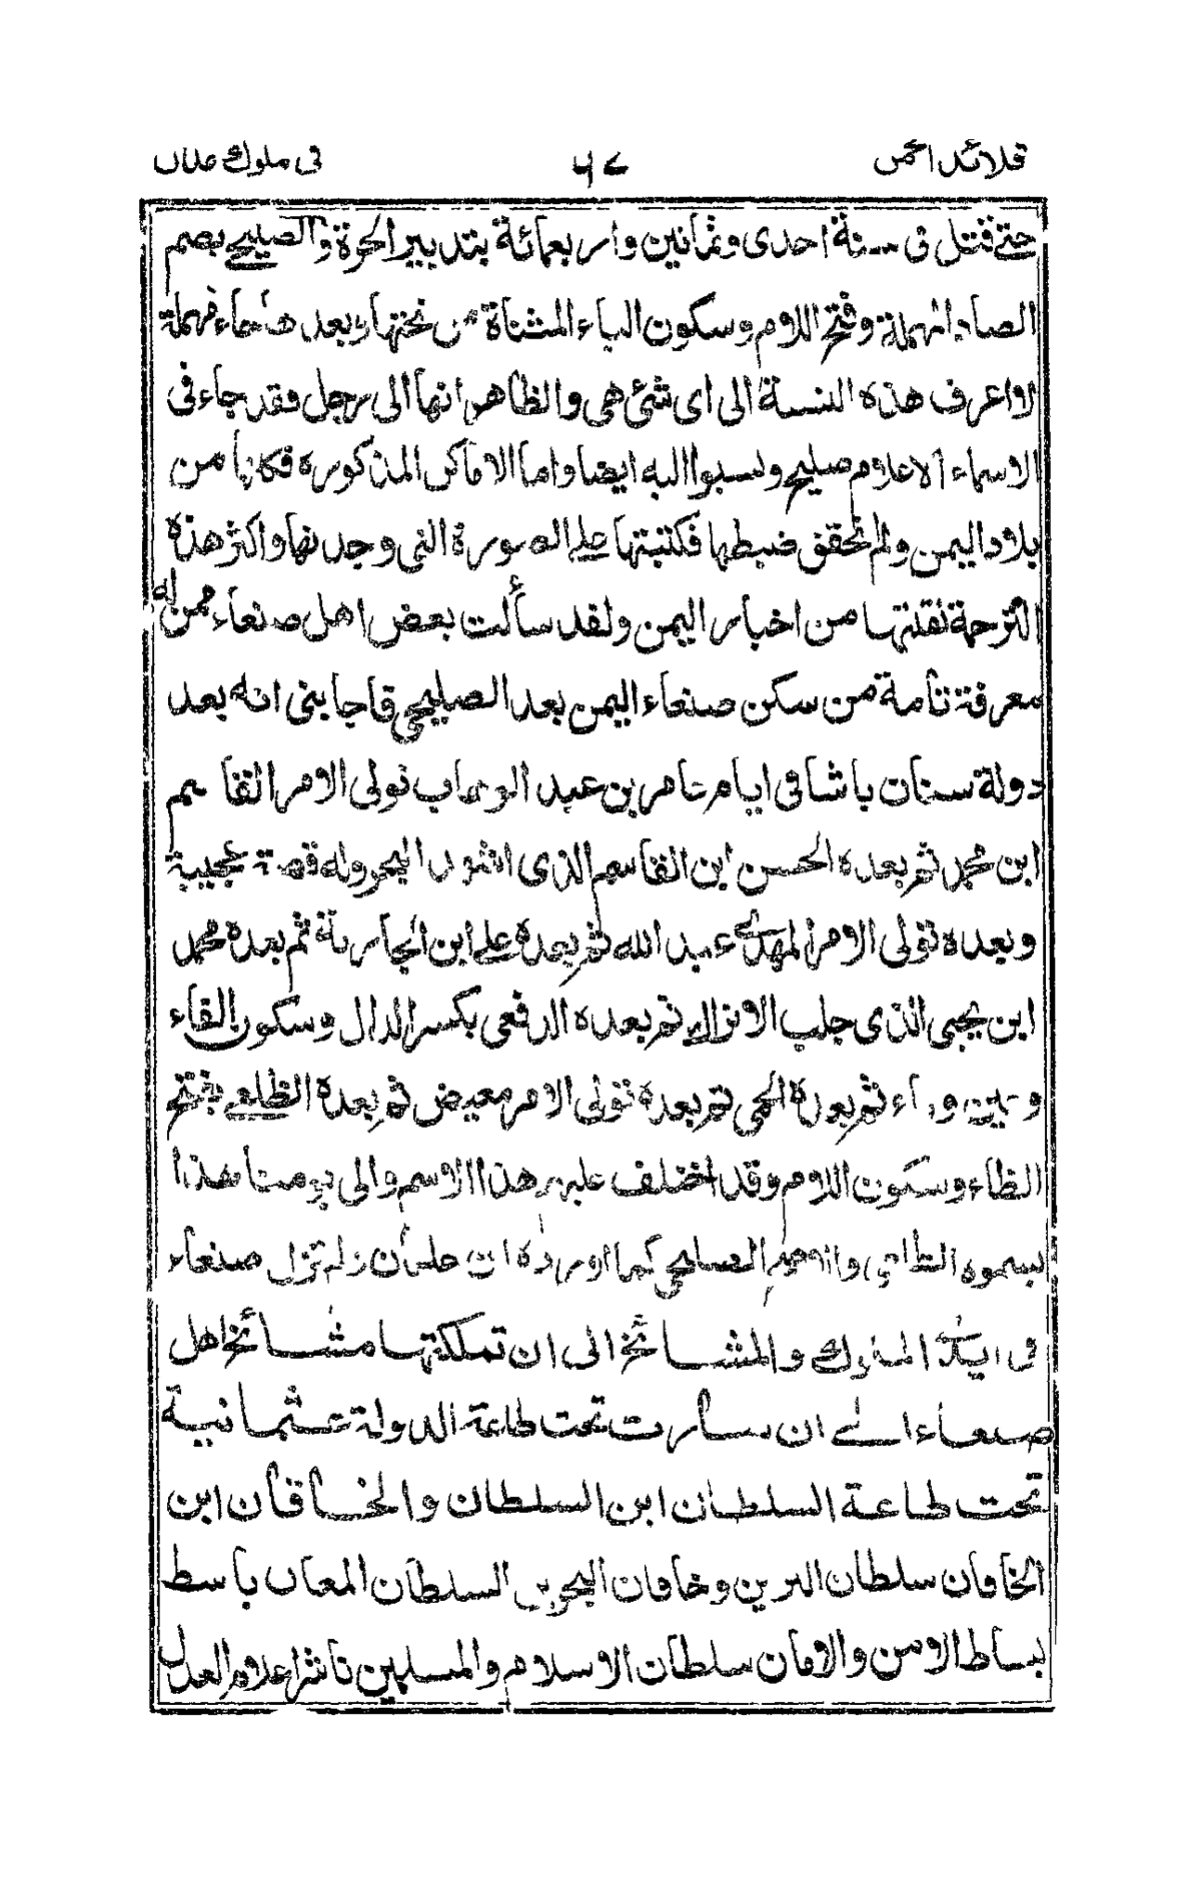 قلائد الجمن ٦٧ فى ملوك عدن
حتى قتل فى سنة احدى وثمانين واربعمائة بتدبير الحرة والصليحى بضم
الصاد المهملة وفتح اللام وسكون الياء المثناة من تحتها وبعدها حاء مهملة
لا اعرف هذه النسبة الى اى شئ هى والظاهر انها الى رجل فقد جاء فى
الاسماء الاعلام صليح ونسبوا اليه ايضا واما الاماكن المذكوره فكلها من
بلاد اليمن ولم اتحقق ضبطها فكتبتها على الصورة التى وجدتها واكثر هذه
الترجمة نقلتها من اخبار اليمن ولقد سألت بعض اهل صنعاء ممن له
معرفة تامة من سكن صنعاء اليمن بعد الصليحى فاجابنى انه بعد
دولة سنان باشا فى ايام عامر بن عبد الوهاب تولى الامر القاسم
ابن محمد ثم بعده الحسن ابن القاسم الذى البحر وله قصة عجيبة
وبعده تولى الامر المهدى عبد الله ثم بعده على ابن الجارية ثم بعده محمد
ابن يحيى الذى جلب الاتراك ثم بعده الدفعى بكسر الدال وسكون الفاء
وعين وراء ثم بعده الحمى ثم بعده تولى الامر معيض ثم بعده الظلعى بفتح
الظاء وسكون اللام وقد اختلف عليه هذا الاسم والى يومنا هذا
يسموه الصليحى كما اورده ابن خلكان ولم تزل صنعاء
فى ايدى الملوك والمشائخ الى ان تملكتها مشائخ اهل
صنعاء الى ان سارت تحت طاعة الدولة عثمانية
تحت طاعة السلطان ابن السلطان والخاقان ابن
الخاقان سلطان البرين وخاقان البحرين السلطان المعان باسط
بساط الامن والامان سلطان الاسلام والمسلمين ناشر اعلام العدل